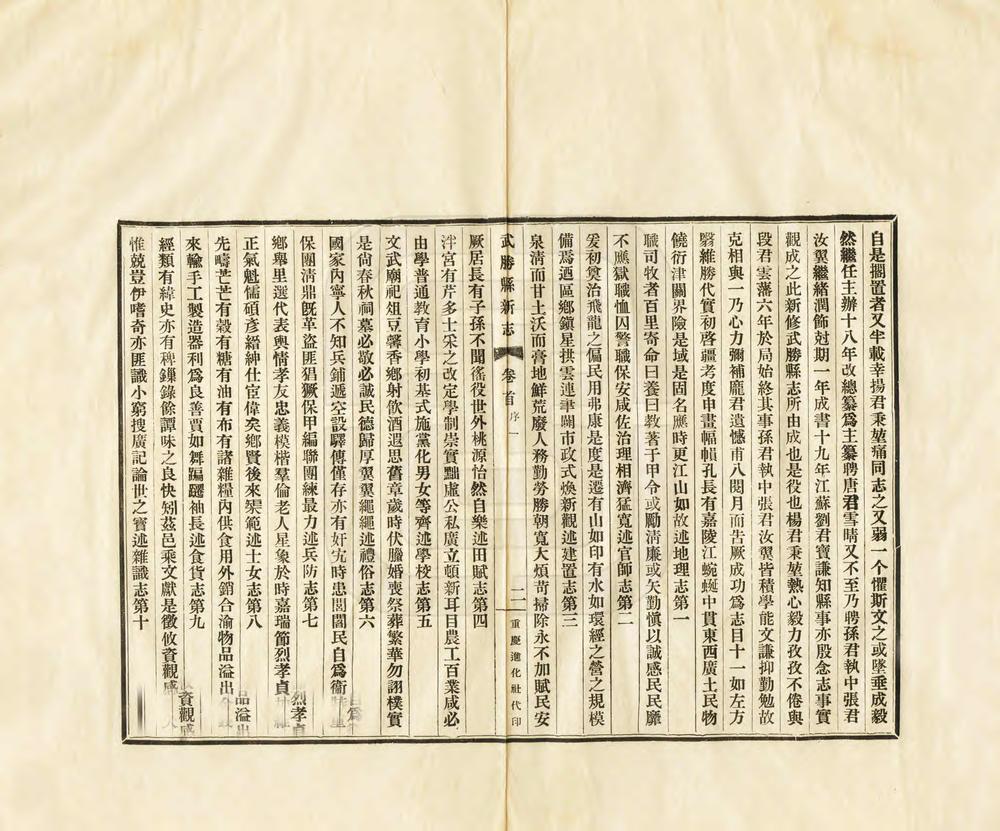 自是擱置者又半載幸揚君秉堃痛同志之又弱一个懼斯文之或墜垂成毅
然繼任主辦十八年改總纂為主纂聘唐君雪晴又不至乃聘孫君執中張君
汝翼繼緒潤飾尅期一年成書十九年江蘇劉君寶謙知縣事亦殷念志事實
觀成之此新修武勝縣志所由成也是役也楊君秉堃熱心毅力孜孜不倦與
段君雲藩六年於局始終其事孫君執中張君汝翼皆積學能文謙抑勤勉故
克相與一乃心力彌補龐君遺憾甫八閱月而告厥成功爲志目十一如左方
繄維勝代實初啓疆考度申畫幅幀孔長有嘉陵江蜿蜒中貫東西廣土民物
饒衍津關界險是域是固名應時更江山如故述地理志第一
職司牧者百里寄命曰養曰教著于甲令或勵清廉或矢勤愼以誠感民民靡
不應獄職恤囚警職保安咸佐治理相濟猛寬述官師志第二
爰初奠治飛龍之偏民用弗康是度是遷有山如印有水如環經之營之規模
備焉酒區鄉鎭星拱雲連聿闢市政式煥新觀述建置志第三
泉清而甘土沃而膏地鮮荒廢人務勤勞勝朝寬大煩苛掃除永不加賦民安
武勝縣新志 卷首 序 一 二 重慶進化社代印
厥居長有子孫不聞徭役世外桃源怡然自樂述田賦志第四
泮宮有芹多士采之改定學制崇實黜虛公私廣立頓新耳目農工百業咸必
由學普通教育小學初基式施黨化男女等齊述學校志第五
文武廟祀俎豆馨香鄉射飲酒遐思舊章歲時伏臘婚喪祭葬繁華勿詡樸實
是尙春秋祠墓必敬必誠民德歸厚翼翼繩繩述禮俗志第六
國家內寧人不知兵鋪遞空設驛傳僅存亦有奸宄時患閭閻民自爲衞
保團清鼎旣革盜匪猖獗保甲編聯團練最力述兵防志第七
鄉舉里選代表輿情孝友忠義模楷羣倫老人星象於時嘉瑞節烈孝貞
正氣魁儒碩彥縉紳仕宦偉矣鄉賢後來槼範述士女志第八
先疇芒芒有穀有糖有油有布有諸雜糧內供食用外銷合渝物品溢出
來輸手工製造器利爲良善賈如舞蹁躚袖長述食貨志第九
經類有緯史亦有稗鏁錄餘譚味之良快矧茲邑乘文獻是徵攸資觀感
惟兢豈伊嗜奇亦匪識小窮搜廣記論世之寶述雜識志第十